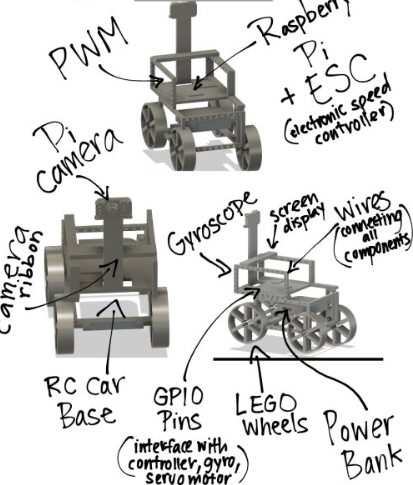 PWM
Raspberry
Pi
+ ESC
(electronic speed
controller)
Pi
camera
camera
ribbon
Gyroscope
screen
display
Wires
(connecting
all
components)
RC Car
Base
GPIO
Pins
(interface with
controller, gyro,
servo motor)
LEGO
Wheels
Power
Bank